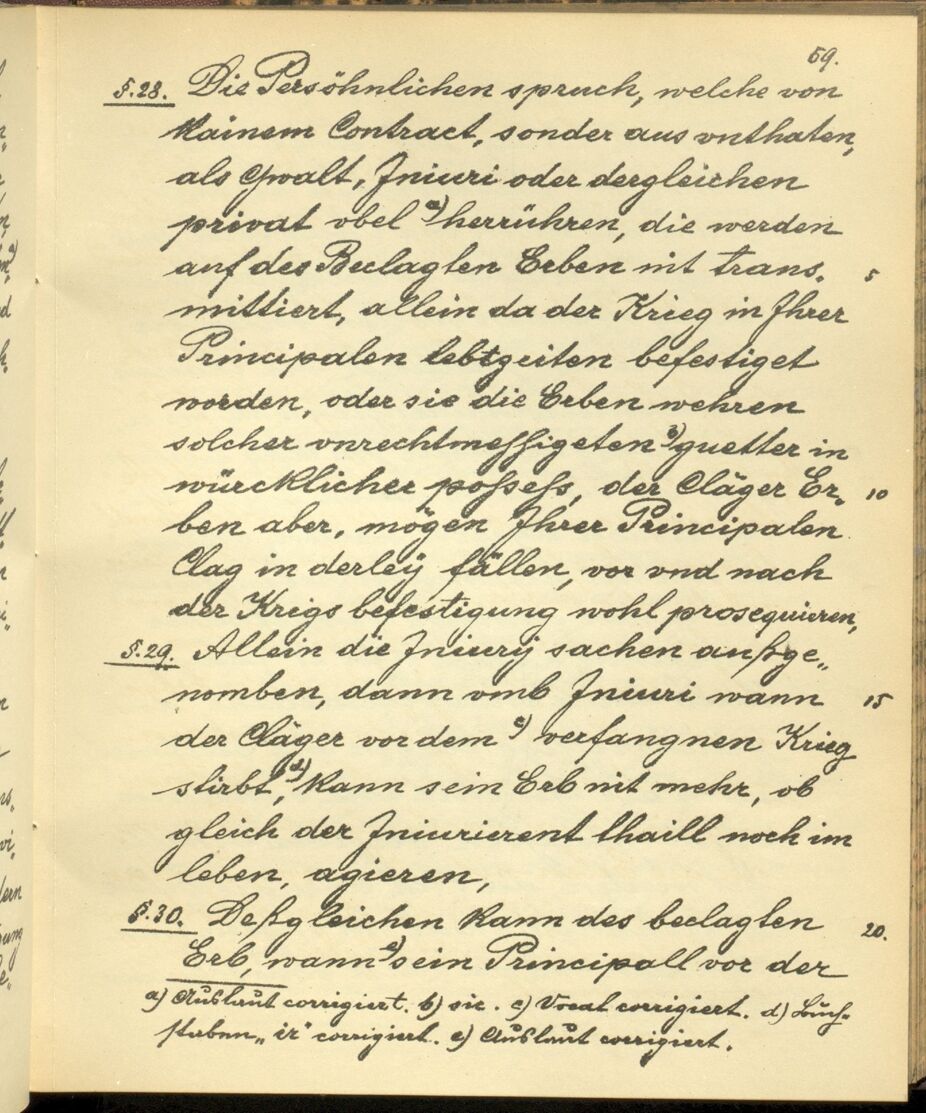 59.
§.28. Die Persöhnlichen spruch, welche von
kainem Contract, sonder aus vnthaten,
als Gwalt, Iniuri oder dergleichen
privat vbel a) herrühren, die werden
auf des Beclagten Erben nit trans„ 5
mittiert, allein da der Krieg in Ihrer
Principalen lebtzeiten befestiget
worden, oder sie die Erben wehren
solcher vnrechtmessigeten b) guetter in
würcklicher possess, der Cläger Er„ 10
ben aber, mögen Ihrer Principalen
Clag in derleÿ fällen, vor vnd nach
der Krigs befestigung wohl prosequieren,
§.29. Allein die Iniurÿ sachen außge„
nomben, dann vmb Iniuri wann 15
der Cläger vor dem c) verfangnen Krieg
stirbt, d) kann sein Erb nit mehr, ob
gleich der Iniurierent thaill noch im
leben, agieren,
§.30. Deßgleichen kann des beclagten 20.
Erb, wann e) sein Principall vor der
a) Auslaut corrigiert. b) sic. c) Vocal corrigiert. d) Buch-
staben „ir" corrigiert. e) Auslaut corrigiert.